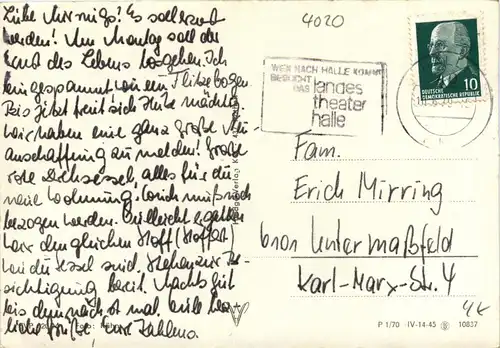 4020
Liebe Mirrings! Es soll ernst
werden! Am Montag soll der
Ernst des Lebens losgehen. Ich
eingespannt wie ein Flitzebogen.
Bis jetzt freut sich Hübe mächtig.
Wir haben eine ganz große Neu-
anschaffung zu melden! Große
rote Drehsessel, alles für die
neue Wohnung. Couch muß noch
bezogen werden. Vielleicht ergattern
wir den gleichen Stoff (Hoffent.)
wie die Sessel sind. Stehen zur Be-
sichtigung bereit. Macht's gut
bis demnächst mal. Viele herz-
liche Grüße, Eure
WER NACH HALLE KOMMT
BESUCHT
DAS
landes
theater
halle
DEUTSCHE
DEMOKRATISCHE REPUBLIK
10
Fam.
Erich Mirring
6101 Untermaßfeld
Karl-Marx-Str. 4
P 1/70 IV-14-45 10837